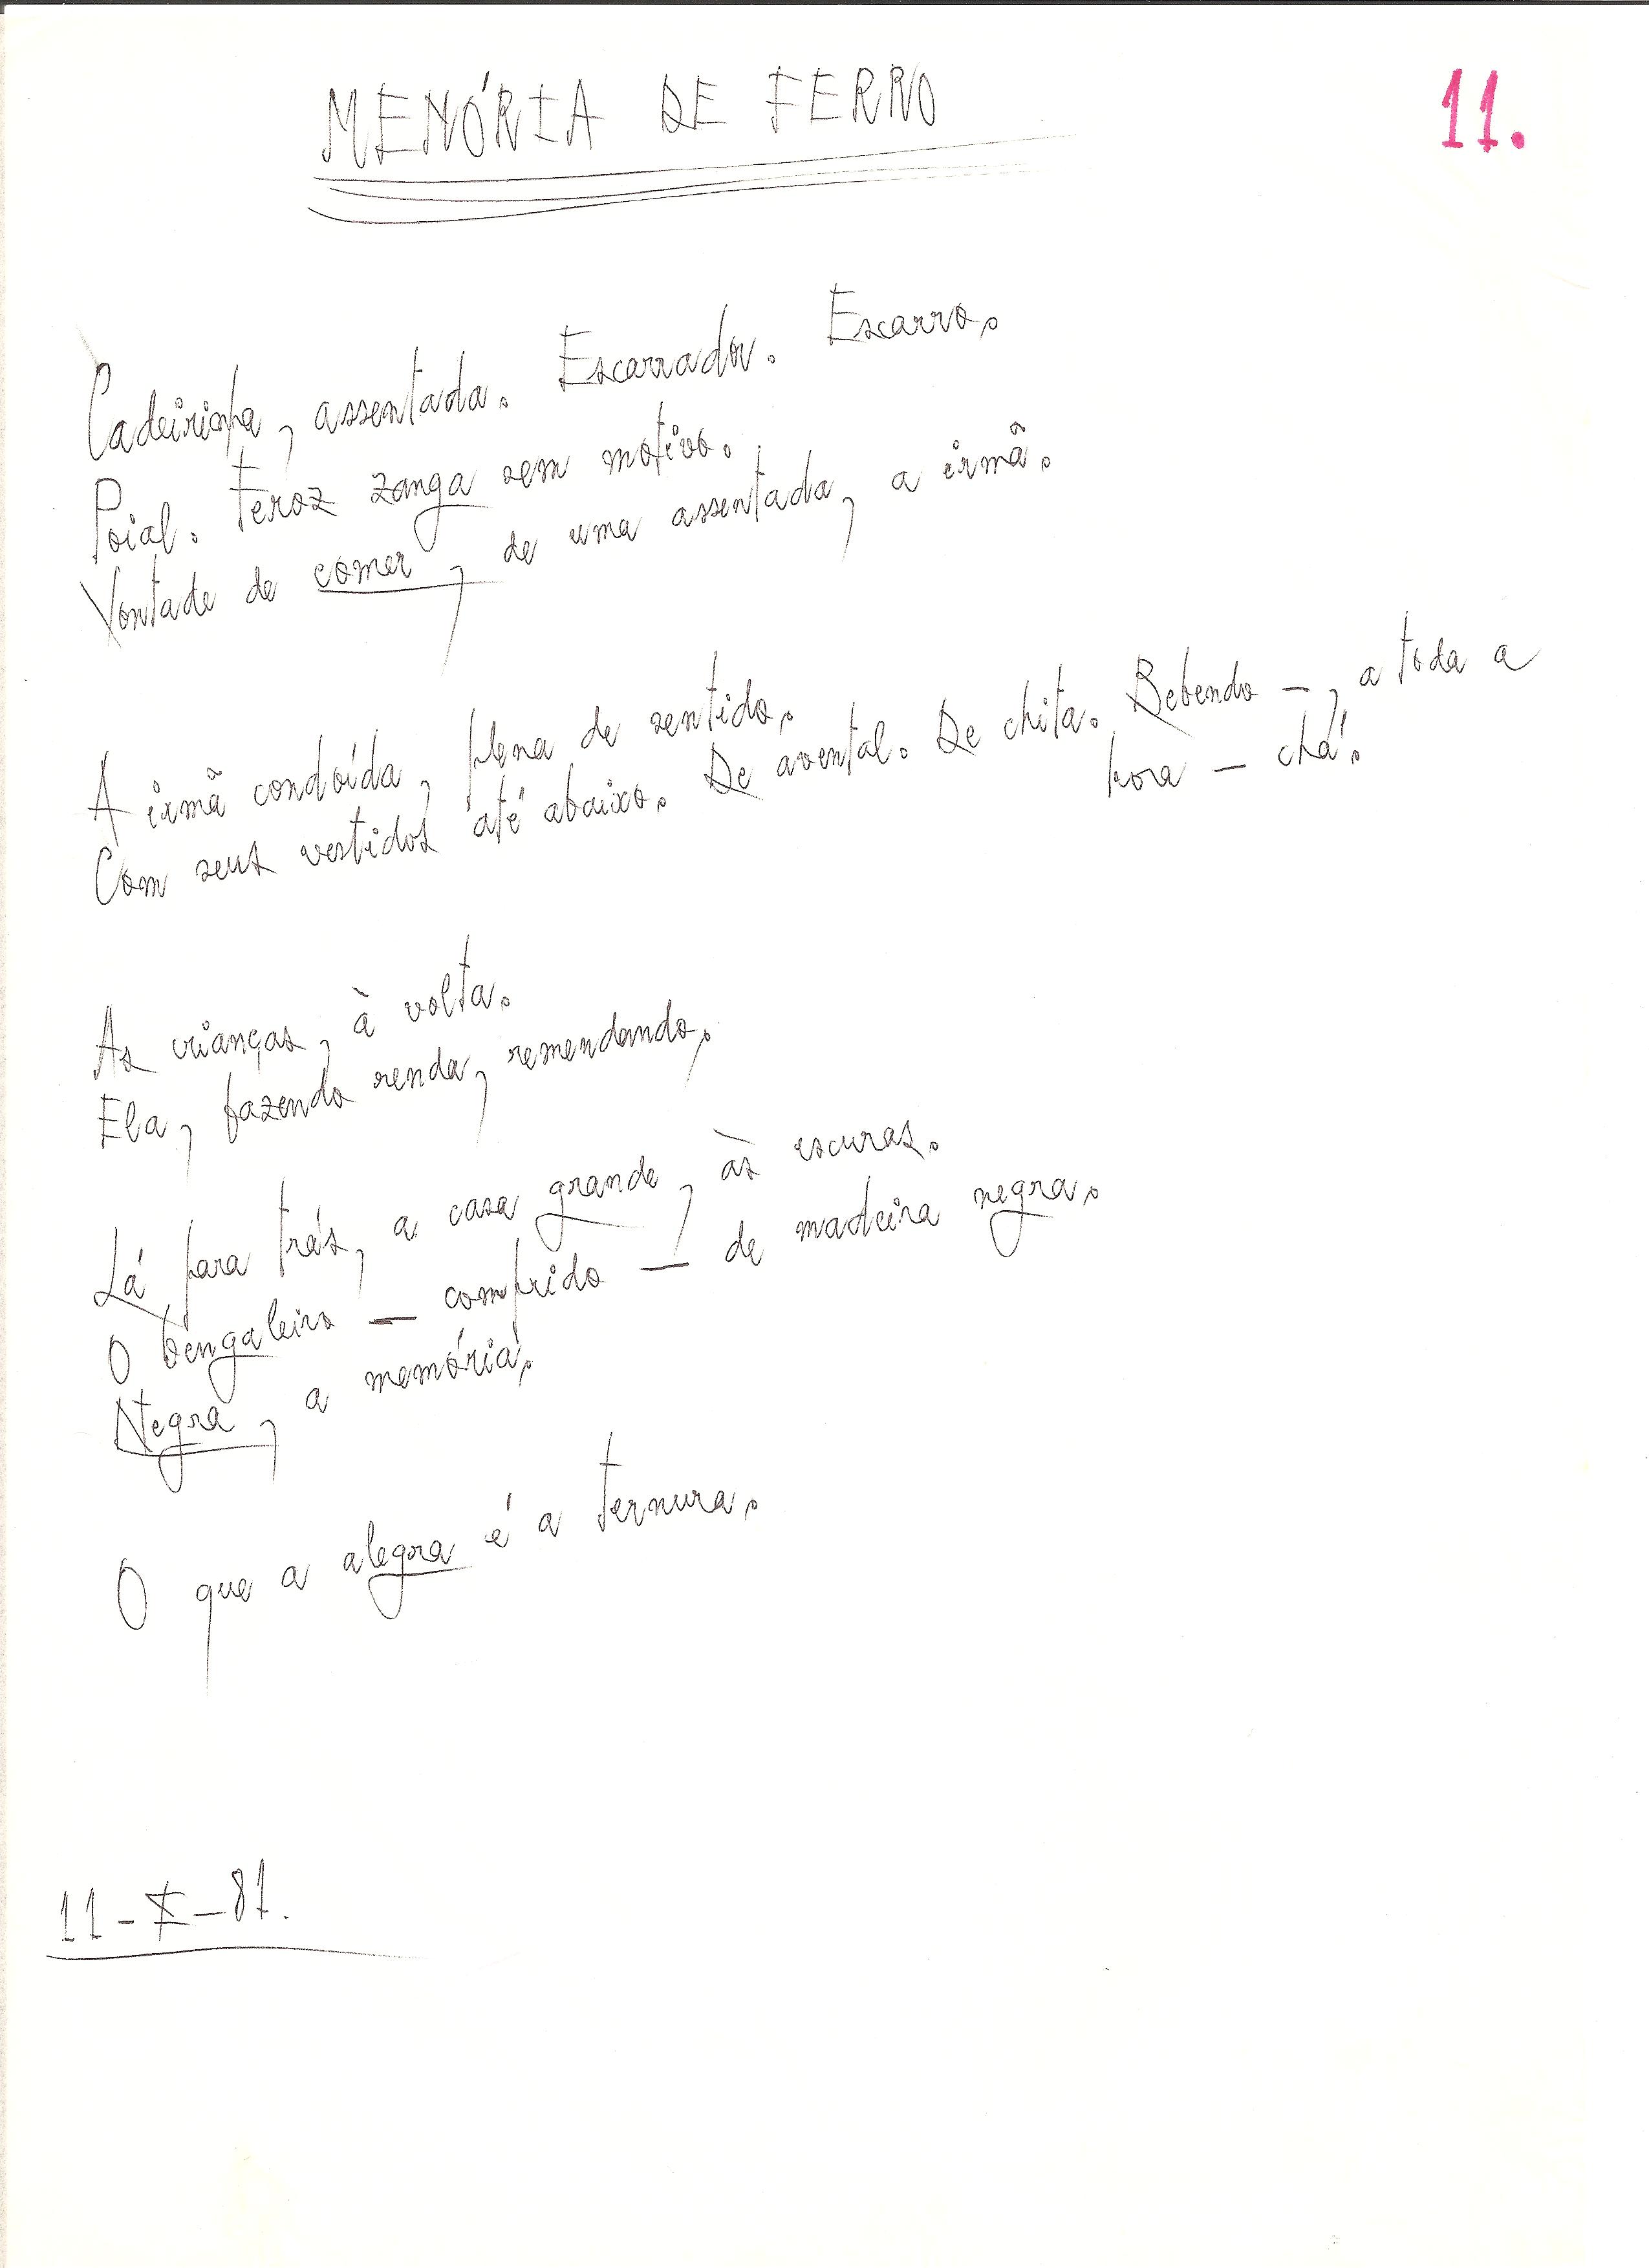 MEMÓRIA DE FERRO
11.
Cadeirinha, assentada. Escarrador. Escarro.
Poial. Feroz zanga sem motivo.
Vontade de comer, de uma assentada, a irmã.
A irmã condoída, plena de sentido.
Com seus vestidos até abaixo. De avental. De chita. Bebendo –, a toda a
hora – chá.
As crianças, à volta.
Ela, fazendo renda, remendando.
Lá para trás, a casa grande, às escuras.
O bengaleiro – comprido – de madeira negra.
Negra, a memória.
O que a alegra é a ternura.
11-X-81.